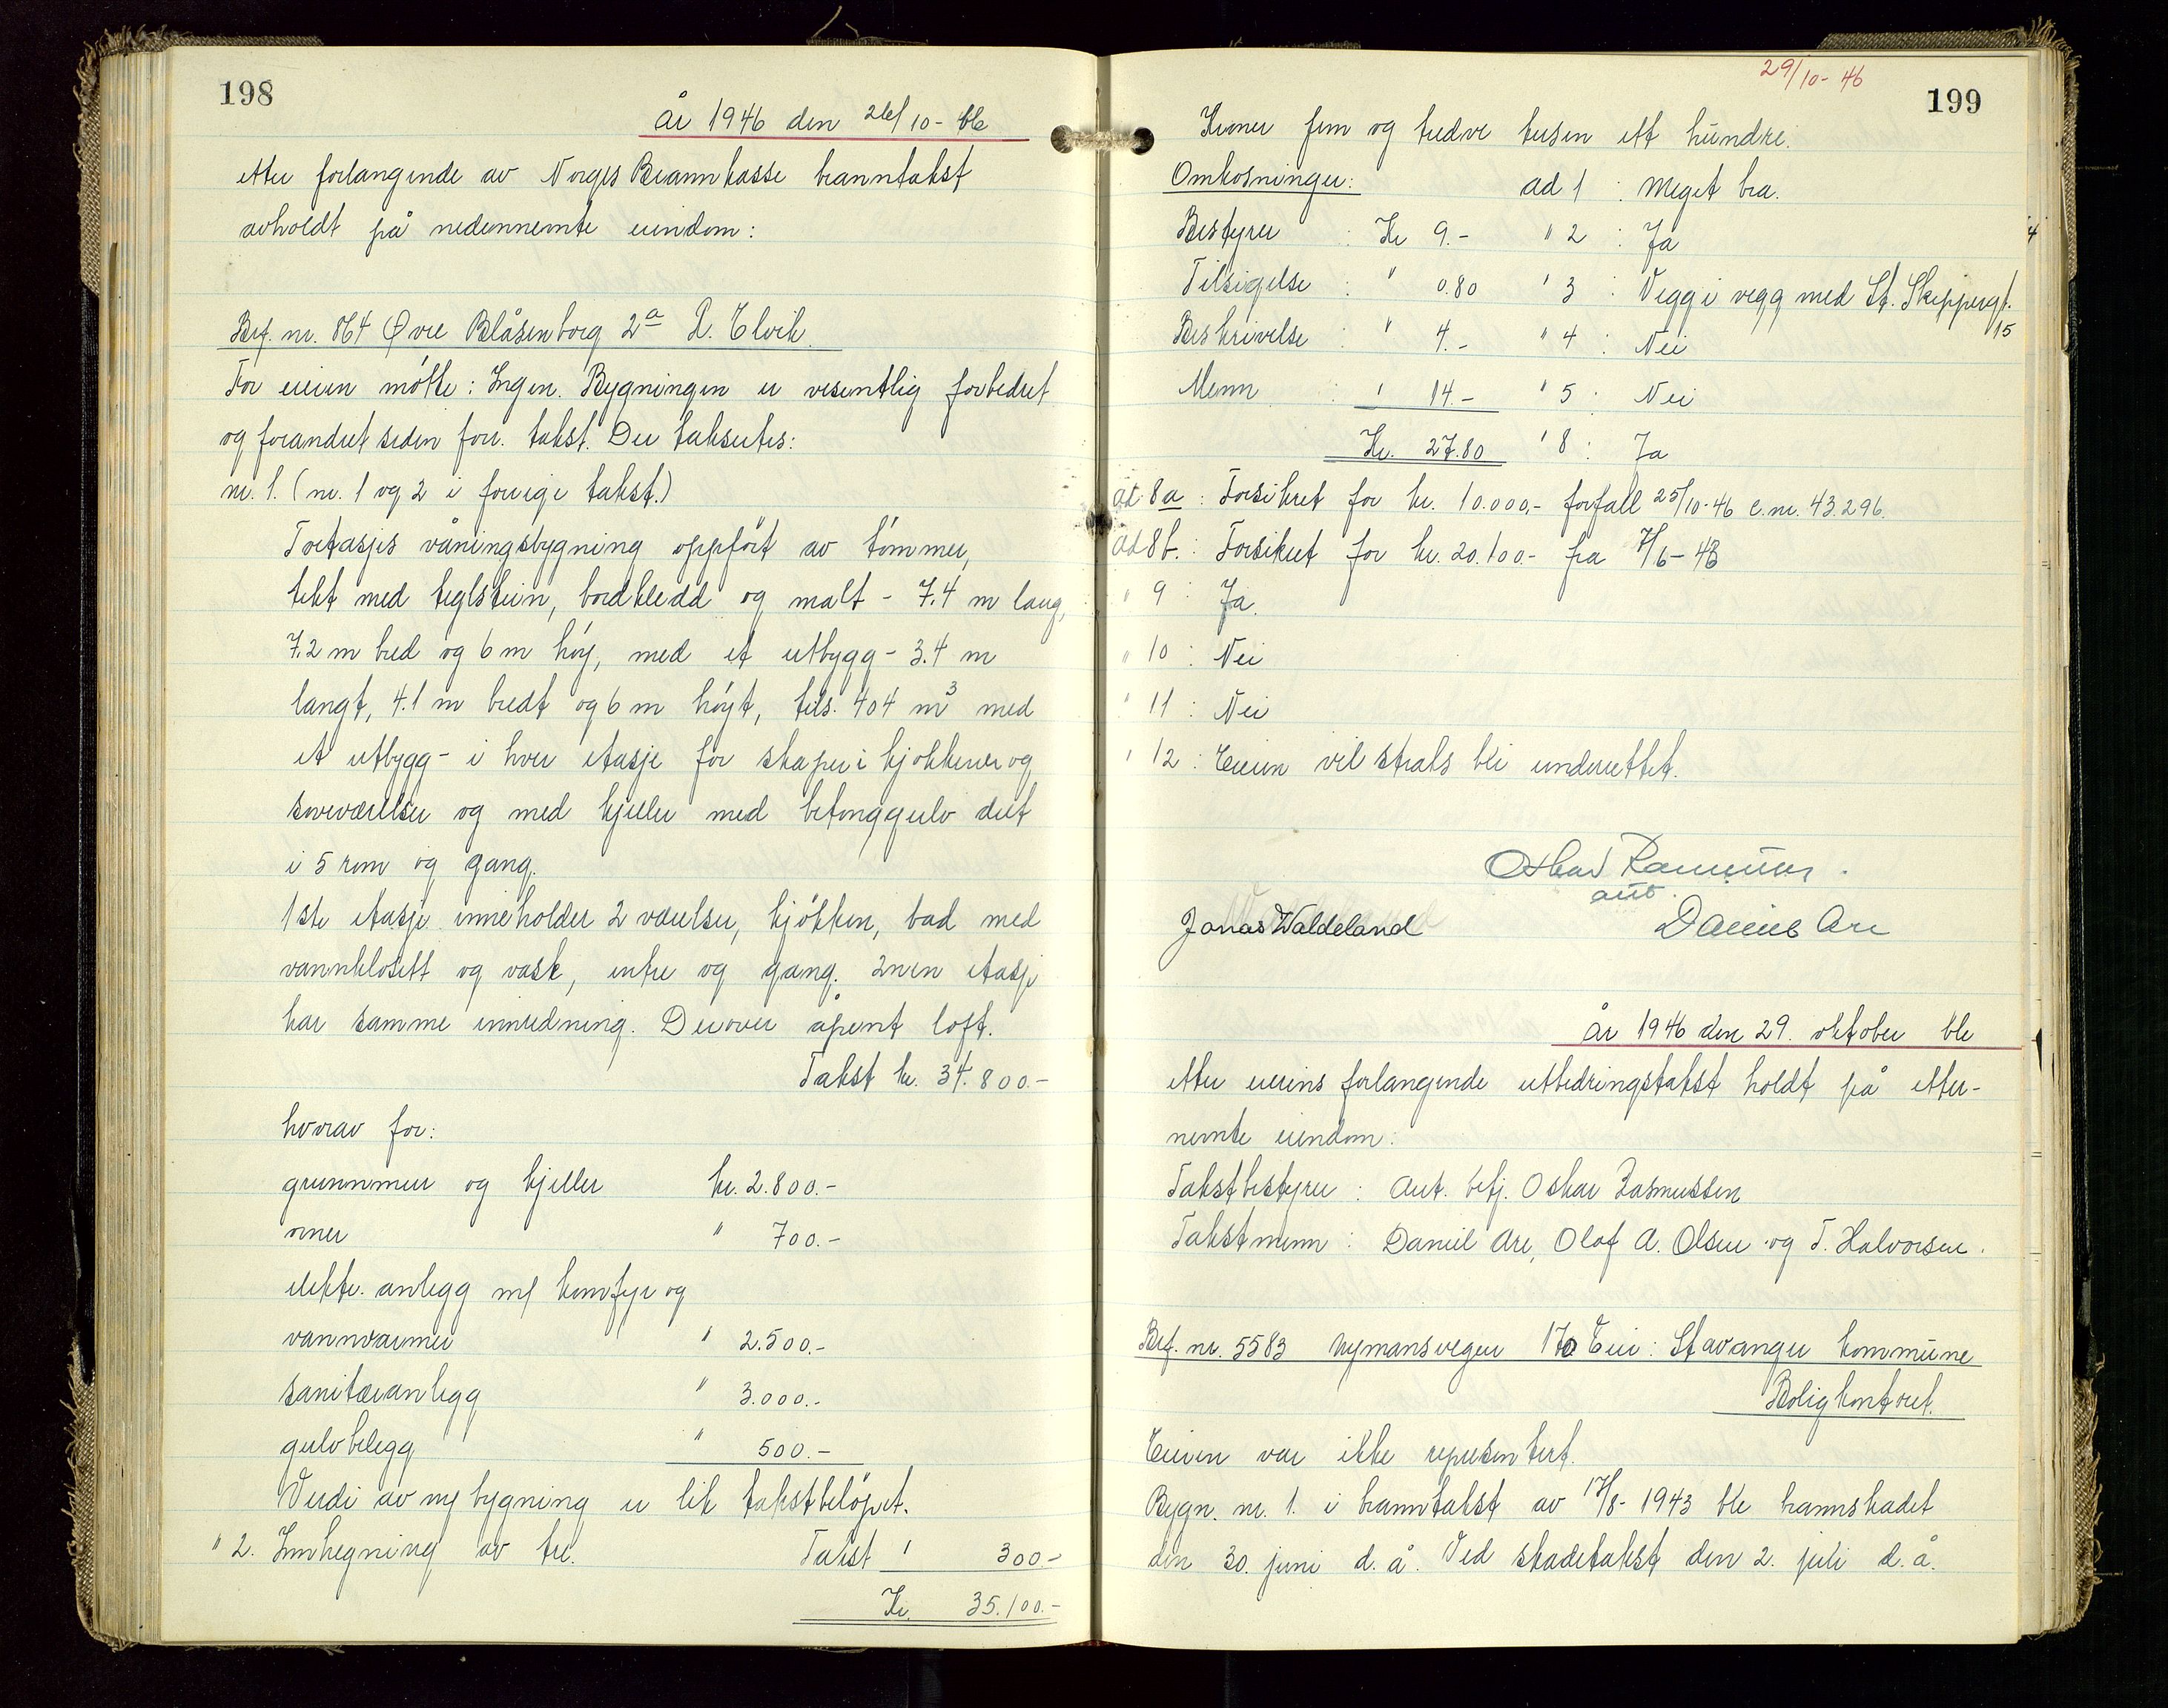 198
År 1946 den 26/10- ble
etter forlangende av Norges Brannkasse branntakst
avholdt på nedennevnte eiendom:
Brf. nr. 864 Øvre Blåsenborg 2a R. Elvik.
For eieren møtte: Ingen. Bygningen er vesentlig forbedret
og forandret siden forr. takst. Der takseres:
nr. 1. (nr. 1 og 2 i forrige takst.)
Toetasjes våningsbygning oppført av tømmer,
tekt med teglstein, bordkledd og malt - 7.4 m lang,
7.2 m bred og 6 m høy, med et utbygg - 3.4 m
langt, 4.1 m bredt og 6 m høyt, tils. 404 m3 med
et utbygg - i hver etasje for skaper i kjøkkener og
soveværelser og med kjeller med betonggulv delt
i 5 rom og gang.
1ste etasje inneholder 2 værelser, kjøkken, bad med
vannklosett og vask, entre og gang. 2nen etasje
har samme innredning. Derover åpent loft.
Takst kr. 34.800.-
hvorav for:
grunnmur og kjeller kr. 2.800.-
ovner " 700.-
elektr. anlegg m/ komfyr og
vannvarmer " 2.500.-
sanitæranlegg " 3.000.-
gulvbelegg " 500.-
Verdi av ny bygning er lik takstbeløpet.
" 2. Innhegning av tre. Takst " 300.-
Kr. 35.100.-
29/10- 46
199
Kroner fem og tredve tusen ett hundre.
Omkosninger: ad 1 : Meget bra.
Bestyrer : Kr 9.- " 2 : Ja
4
Tilsigelse : " 0.80 " 3 : Vegg i vegg med St. Skippergt.
15
Beskrivelse : " 4.- " 4 : Nei
Menn : " 14.- " 5 : Nei
Kr. 27.80 " 8 : Ja
ad 8a : Forsikret for kr. 10.000,- forfall 25/10-46 c.nr. 43.296.
ad 8b. : Forsikret for kr. 20.100.- fra 7/6-43
" 9 : Ja.
" 10 : Nei
" 11 : Nei
" 12 : Eieren vil straks bli underrettet.
Oskar Rasmussen.
aut.
Jonas Waldeland Daniel Are
År 1946 den 29. oktober ble
etter eierens forlangende utbedringstakst holdt på etter-
nevnte eiendom:
Takstbestyrer : Aut. betj. Oskar Rasmussen
Takstmenn : Daniel Are, Olaf A. Olsen og T. Halvorsen.
Brf. nr. 5583 Nymansvegen 170 Eier: Stavanger kommune
Boligkontoret.
Eieren var ikke representert.
Bygn. nr. 1. i branntakst av 17/8- 1943 ble brannskadet
den 30. juni d.å. Ved skadetakst den 2. juli d.å.